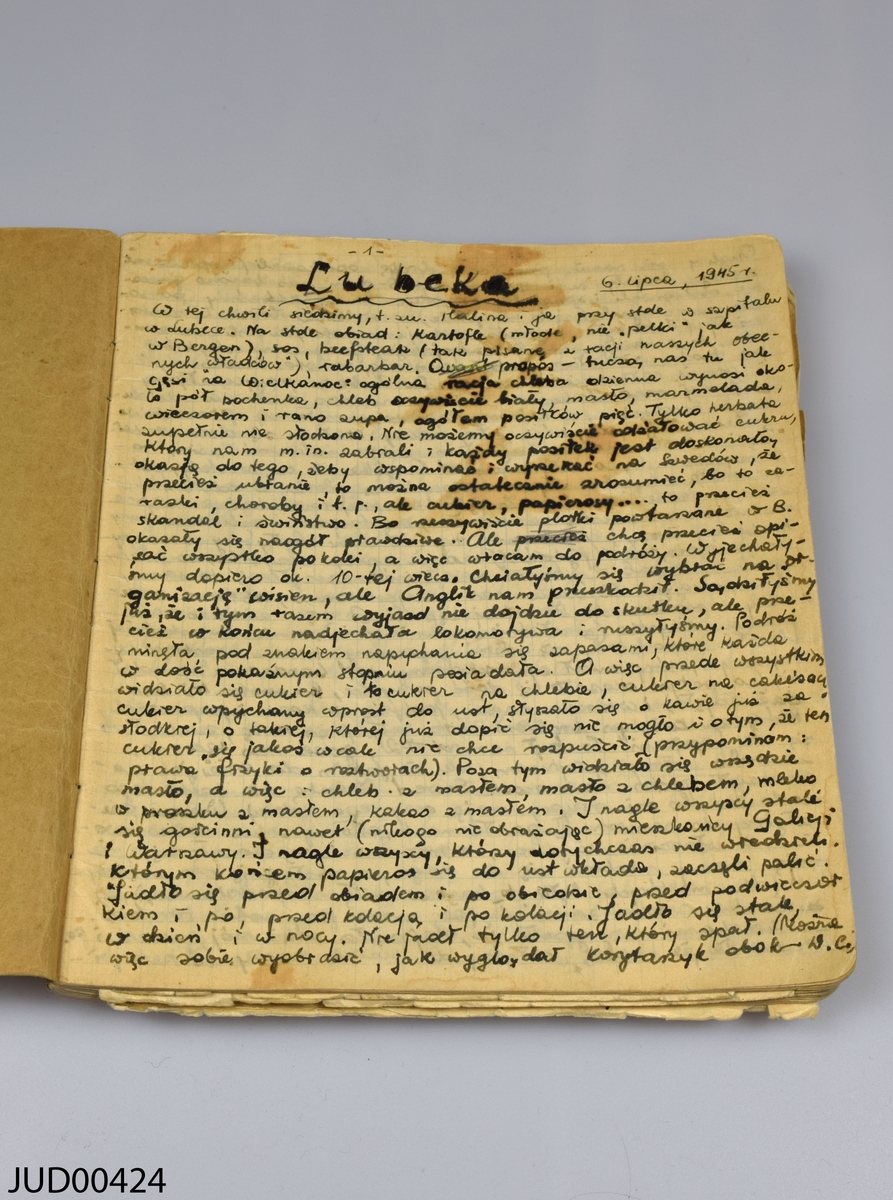 -1-
Lubeka
6. lipca, 1945 r.
W tej chwili siedzimy, t. zn. Halina i ja przy stole w szpitalu
w Lubece. Na stole obiad: Kartofle (młode, nie "pelki" jak
w Bergen), sos, beefsteak (tak pisane z racji naszych obec-
nych "władców"), rabarbar. propos - tuczą nas tu jak
gęsi na Wielkanoc: ogólna racja chleba dzienna wynosi oko-
ło pół bochenka, chleb oczywiście biały, masło, marmolada,
wieczorem i rano zupa, ogółem posiłków pięć. Tylko herbata
zupełnie nie słodzona. Nie możemy oczywiście odżałować cukru,
który nam m. in. zabrali i każdy posiłek jest doskonałą
okazją do tego, żeby wspominać i wyrzekać na Szwedów, że
przecież ubranie, to można ostatecznie zrozumieć, bo to za-
razki, choroby i t. p., ale cukier, papierosy.... to przecież
skandal i świństwo. Bo rzeczywiście plotki powtarzane w B.
okazały się naogół prawdziwe. Ale przecież chcę przecież opi-
sać wszystko pokolei, a więc wracam do podróży. Wyjechały-
śmy dopiero ok. 10-tej wiecz. Chciałyśmy się wybrać na "or-
ganizację" wisien, ale Anglik nam przeszkodził. Sądziłyśmy
już, że i tym razem wyjazd nie dojdzie do skutku, ale prze-
cież w końcu nadjechała lokomotywa i ruszyłyśmy. Podróż
minęła pod znakiem napychania się zapasami, które każda
w dość pokaźnym stopniu posiadała. A więc przede wszystkim
widziało się cukier i to cukier na chlebie, cukier na cakesach,
cukier wpychany wprost do ust, słyszało się o kawie już za
słodkiej, o takiej, której już dopić się nie mogło i o tym, że ten
cukier "się jakoś wcale nie chce rozpuścić" (przypominam:
prawa fizyki o roztworach). Poza tym widziało się wszędzie
masło, a więc: chleb z masłem, masło z chlebem, mleko
w proszku z masłem, kakao z masłem. I nagle wszyscy stali
się gościnni, nawet (nikogo nie obrażając) mieszkańcy Galicji
i Warszawy. I nagle wszyscy, którzy dotychczas nie wiedzieli
którym końcem papieros się do ust wkłada, zaczęli palić.
Jadło się przed obiadem i po obiedzie, przed podwieczor
kiem i po, przed kolacją i po kolacji. Jadło się stale,
w dzień i w nocy. Nie jadł tylko ten, który spał. (Można
więc sobie wyobrazić, jak wyglądał korytarzyk obok W.C.,
JUD00424